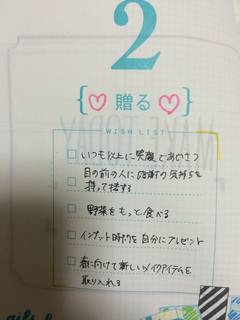 2
贈る
WISH LIST
いつも以上に笑顔であいさつ
目の前の人に感謝の気持ちを
持って接する
野菜をもっと食べる
インプット時間を自分にプレゼント
春に向けて新しいメイクアイテムを
取り入れる